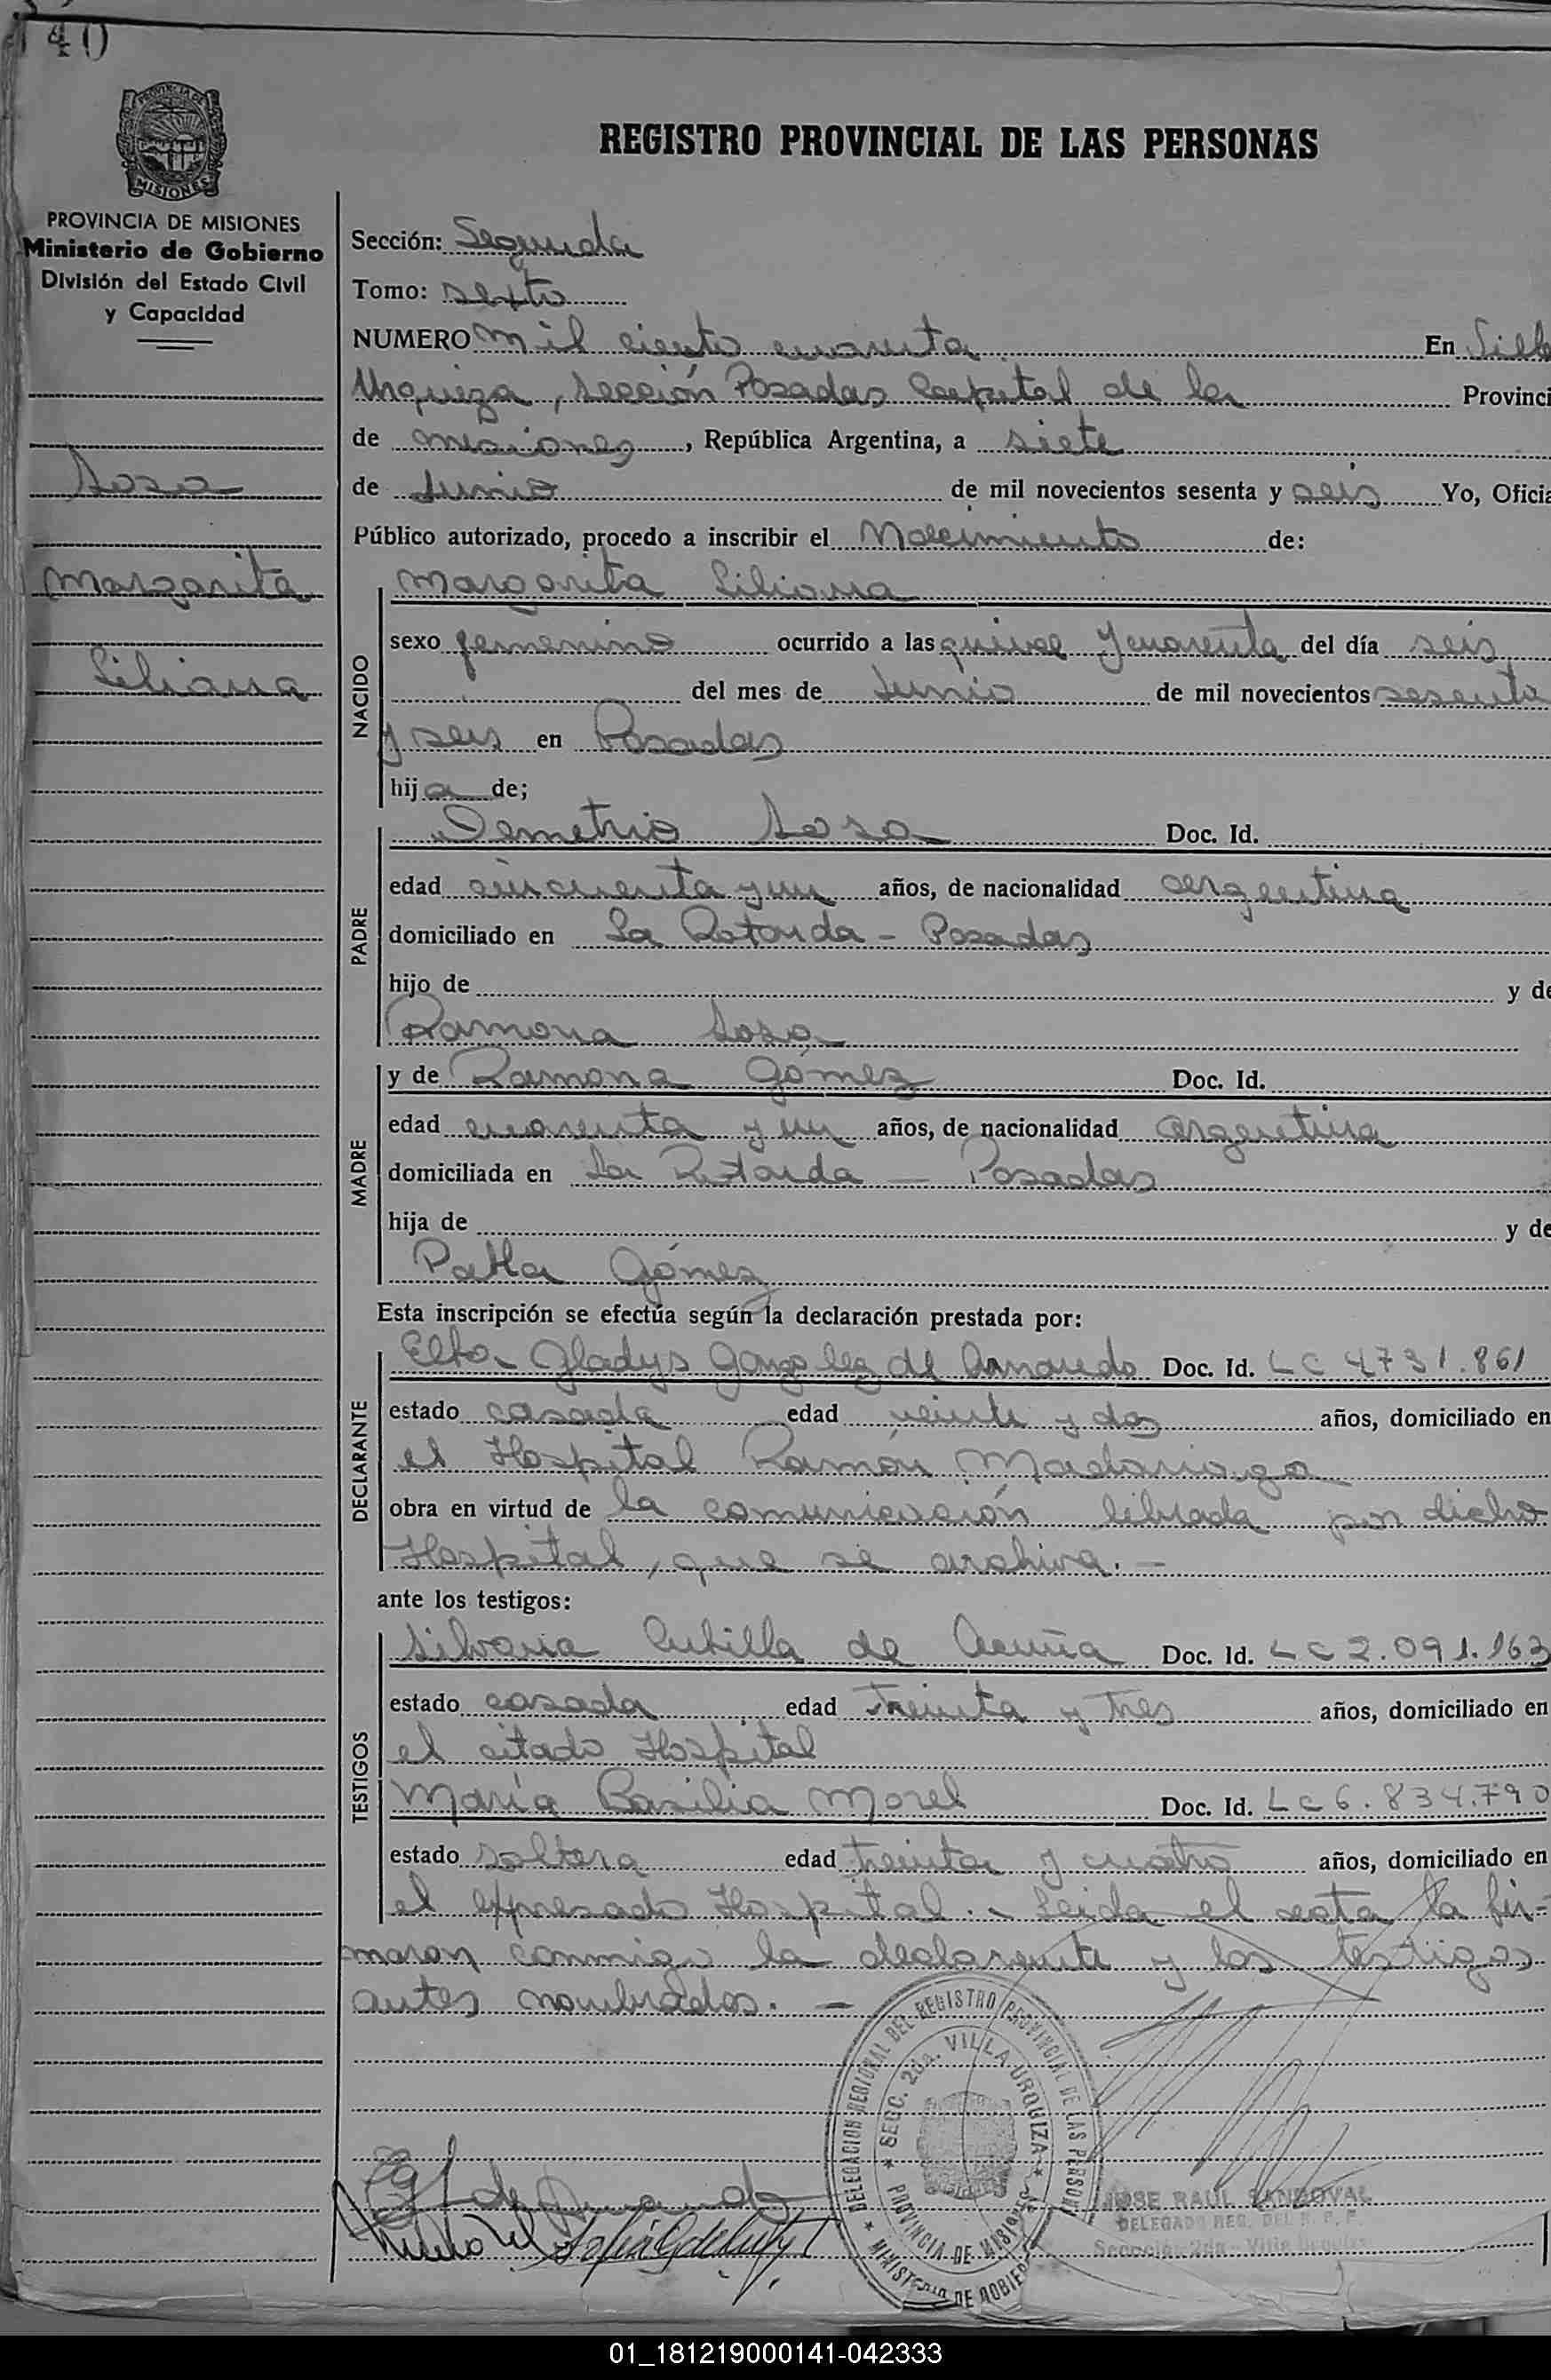 140
PROVINCIA DE MISIONES
REGISTRO PROVINCIAL DE LAS PERSONAS
PROVINCIA DE MISIONES
Ministerio de Gobierno
División del Estado Civil
y Capacidad
Sosa
Margarita
Liliana
Sección: Segunda
Tomo: sexto
NUMERO mil ciento cuarenta En Villa
Urquiza, Sección Posadas Capital de la Provinci
de misiones, República Argentina, a siete
de Junio de mil novecientos sesenta y seis Yo, Oficia
Público autorizado, procedo a inscribir el Nacimiento de:
NACIDO
Margarita Liliana
sexo femenino ocurrido a las quince y cuarenta del día seis
del mes de Junio de mil novecientos sesenta
y seis en Posadas
hija de;
PADRE
Demetrio Sosa Doc. Id.
edad cincuenta y un años, de nacionalidad argentina
domiciliado en La Rotonda - Posadas
hijo de y de
Ramona Sosa
MADRE
y de Ramona Gómez Doc. Id.
edad cuarenta y un años, de nacionalidad argentina
domiciliada en La Rotonda - Posadas
hija de y de
Gómez
Esta inscripción se efectúa según la declaración prestada por:
DECLARANTE
Gladys González de Doc. Id. LC 4731.861
estado casada edad veinte y dos años, domiciliado en
el Hospital Ramón Madariaga
obra en virtud de la comunicación librada por dicho
Hospital, que se archiva. -
ante los testigos:
TESTIGOS
Silvana Cubilla de Acuña Doc. Id. LC 2.091.163
estado casada edad treinta y tres años, domiciliado en
el citado Hospital
María Basilia Morel Doc. Id. LC 6.834.790
estado soltera edad treinta y cuatro años, domiciliado en
el expresado Hospital. - Leida el acta la fir=
maron conmigo la declarante y los testigos
antes nombrados. -
DELEGACION REGIONAL DEL REGISTRO PROVINCIAL DE LAS PERSON
SECC. 2da. VILLA URQUIZA
PROVINCIA DE MISIONES
MINISTERIO DE GOBIE
JOSE RAUL SANDOVAL
DELEGADO REG. DEL R. P. P.
Sección 2da - Villa Urquiza
01_181219000141-042333